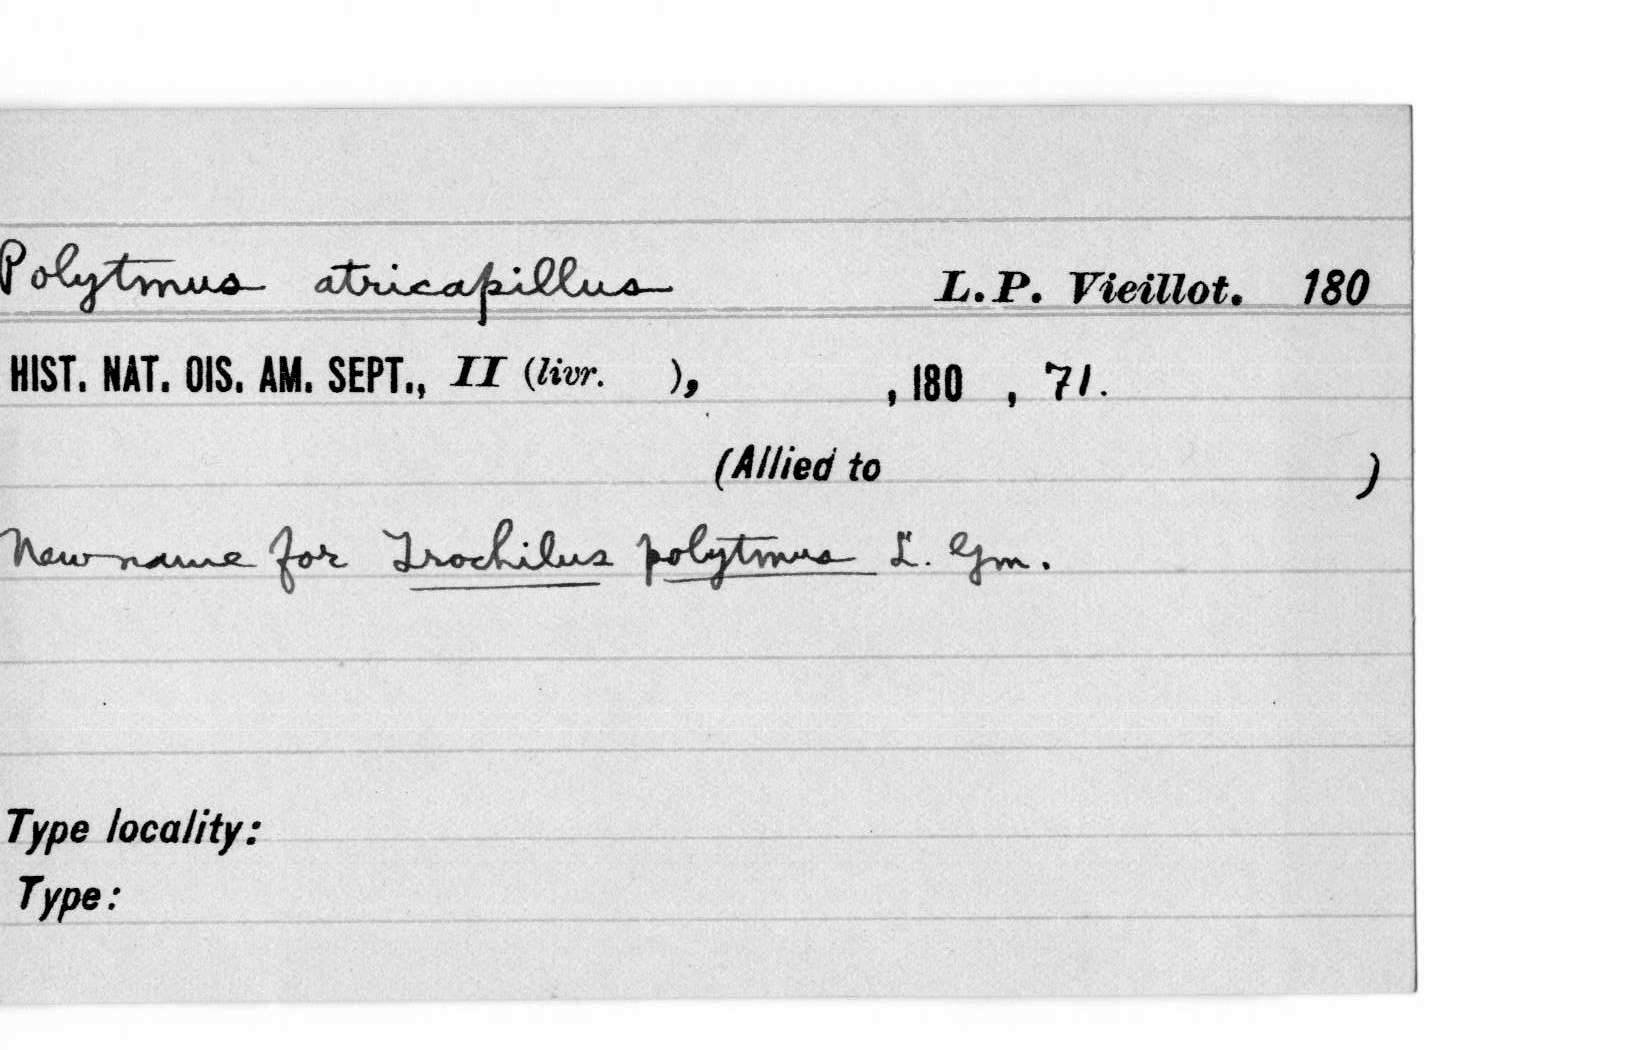 Polytmus atricapillus L.P. Vieillot. 180
HIST. NAT. OIS. AM. SEPT., II (livr. ), , 180 , 71.
(Allied to )
New name for Trochilus polytmus L. Gm.
Type locality:
Type: